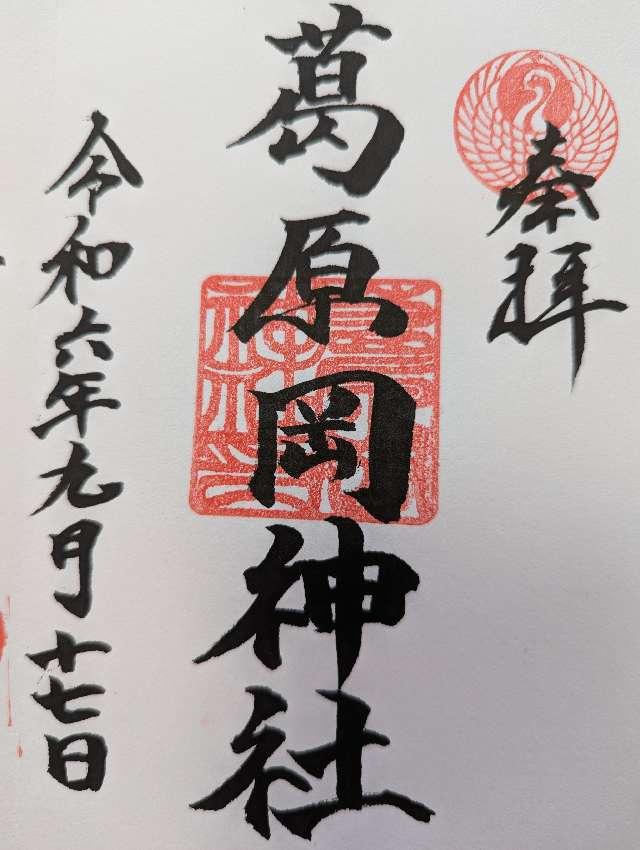 奉拝
葛原岡神社
令和六年九月十七日